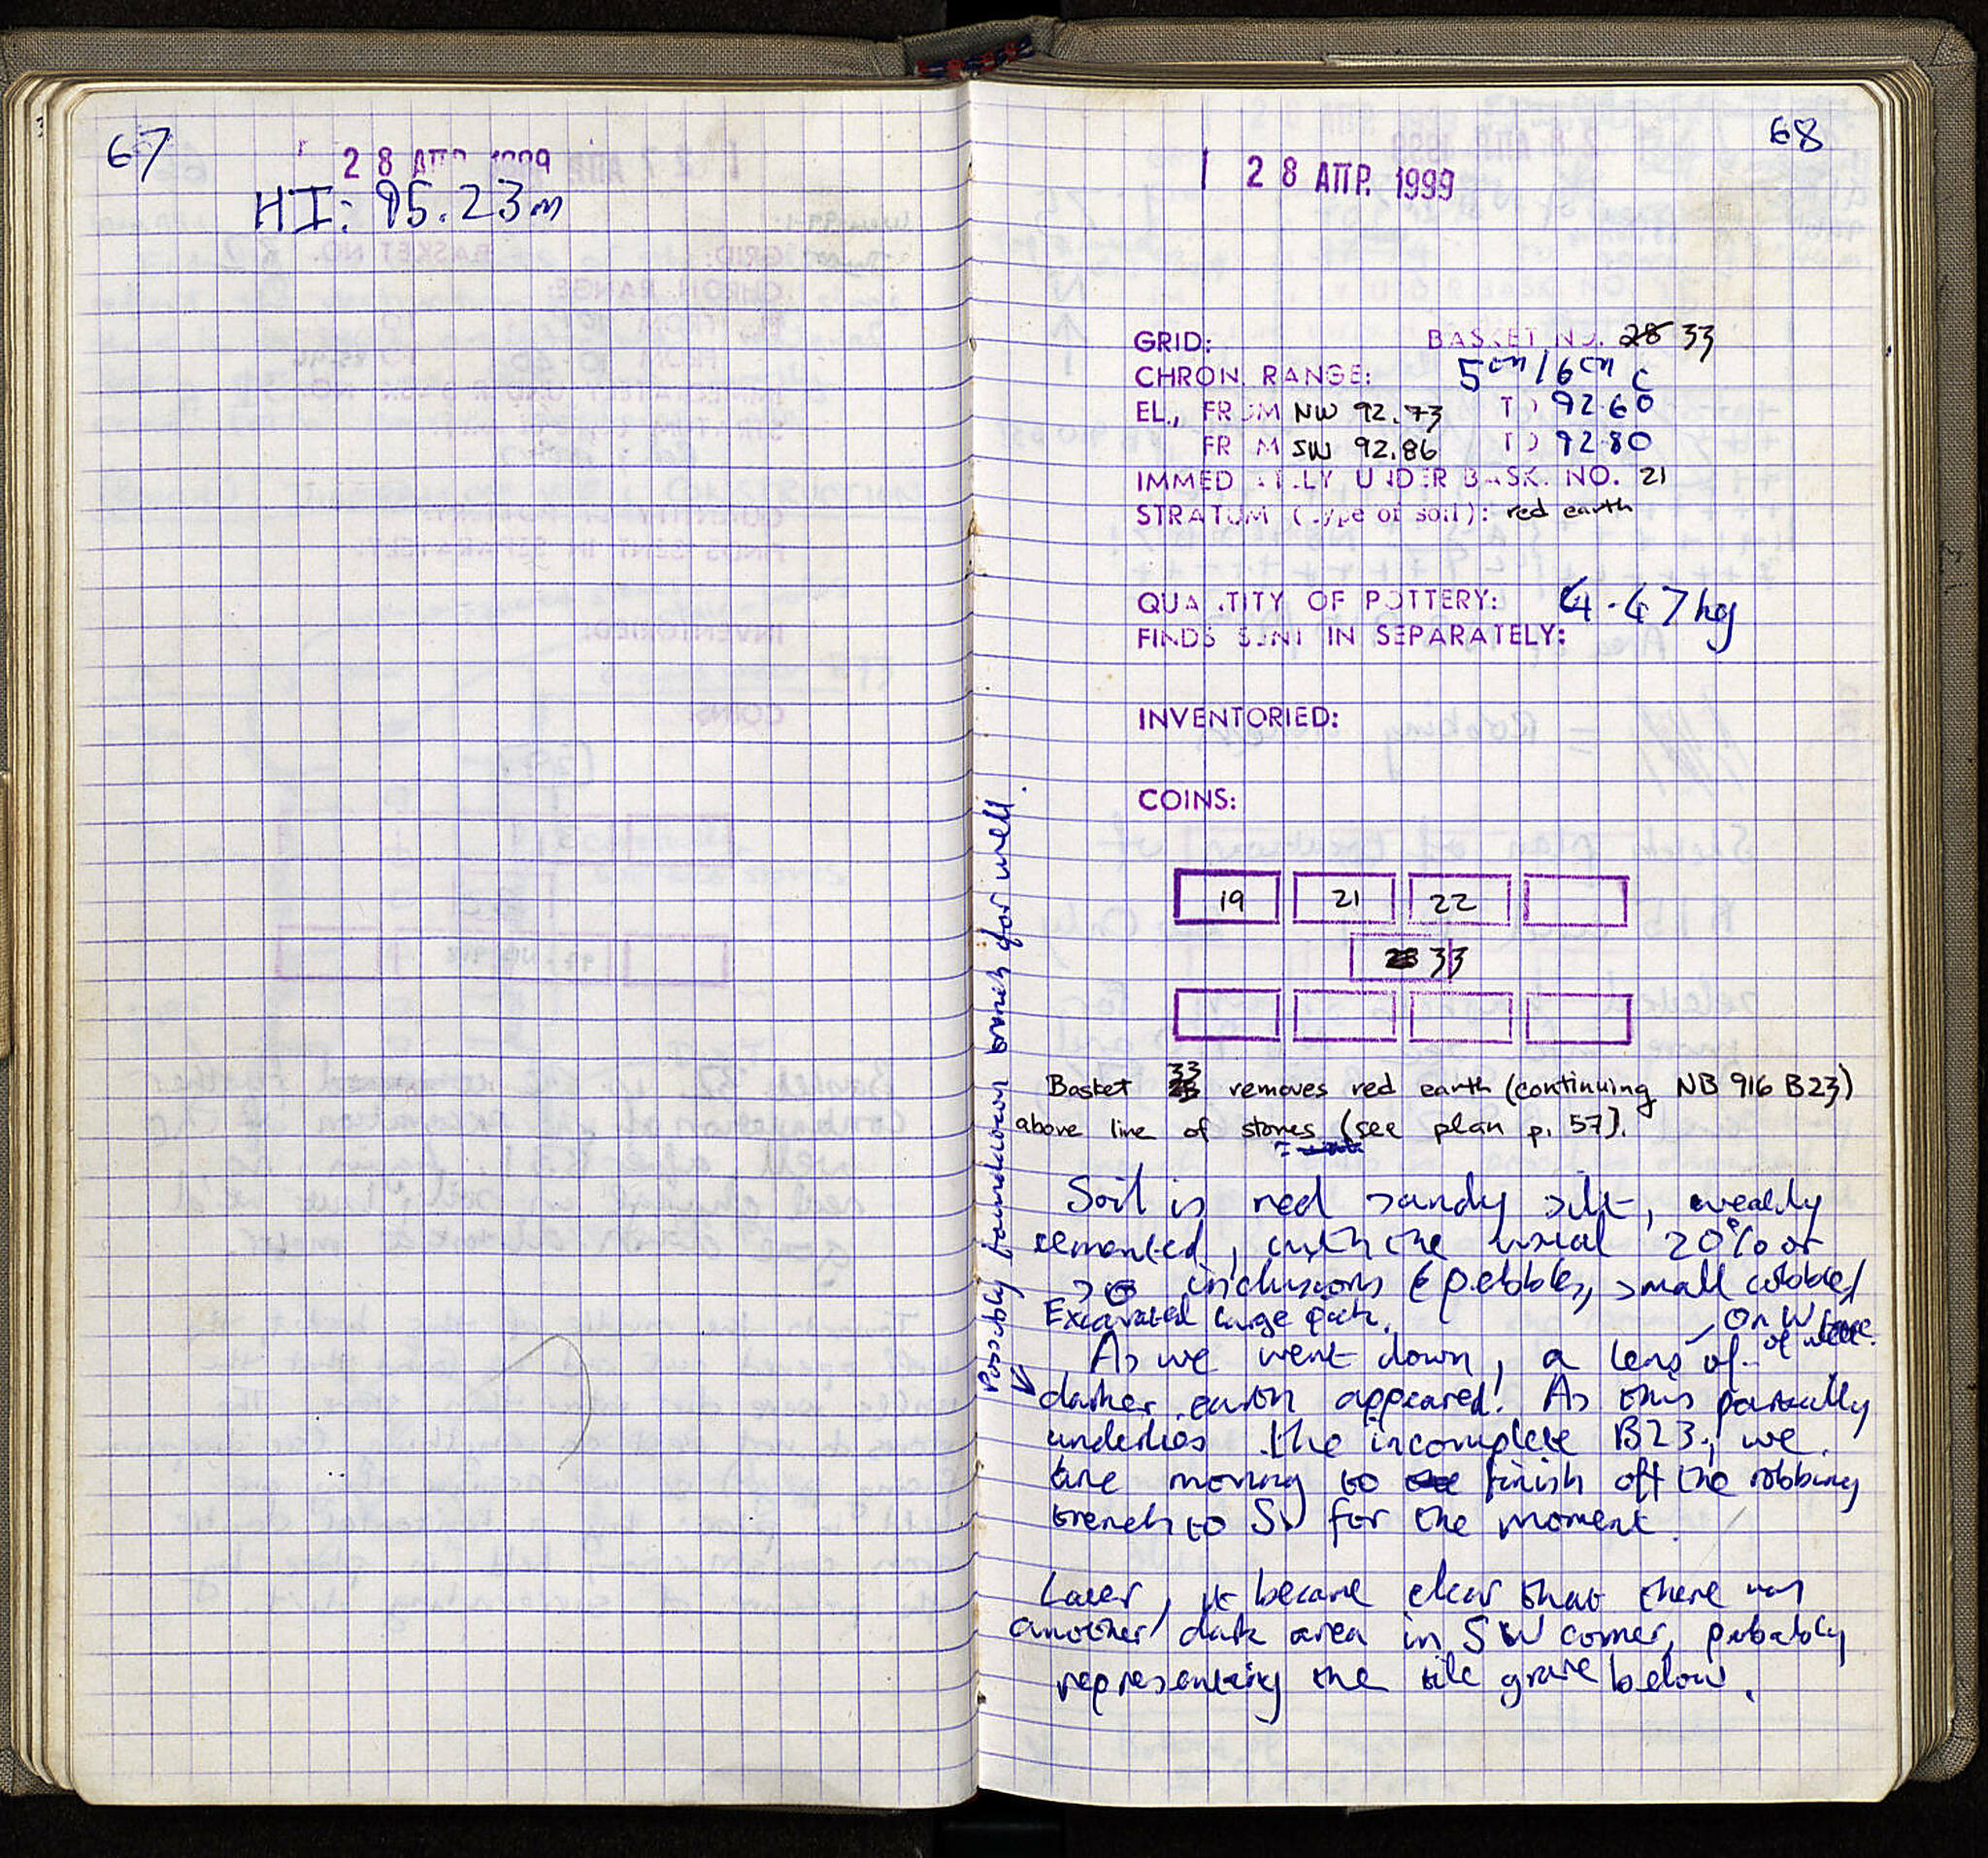 67
28 ΑΠΡ 1999
HI: 95.23m
68
28 ΑΠΡ. 1999
GRID: BASKET NO. 28 33
CHRON. RANGE: 5th/6th C
EL., FROM NW 92.73 TO 92.60
FROM SW 92.86 TO 92.80
IMMEDIATELY UNDER BASK. NO. 21
STRATUM (type of soil): red earth
QUANTITY OF POTTERY: 4.47 kg
FINDS SENT IN SEPARATELY:
INVENTORIED:
COINS:
19 21 22
28 33
Basket 33 removes red earth (continuing NB 916 B23)
above line of stones (see plan p. 57).
Soil is red sandy silt, weakly
cemented, with the usual 20% or
so inclusions (pebbles, small cobbles)
Excavated large pick.
On W face
of well.
As we went down, a lens of
darker earth appeared. As this partially
underlies the incomplete B23, we
are moving to finish off the robbing
trench to SW for the moment.
Later, it became clear that there was
another dark area in SW corner, probably
representing the tile grave below.
Possibly foundation trench for well.